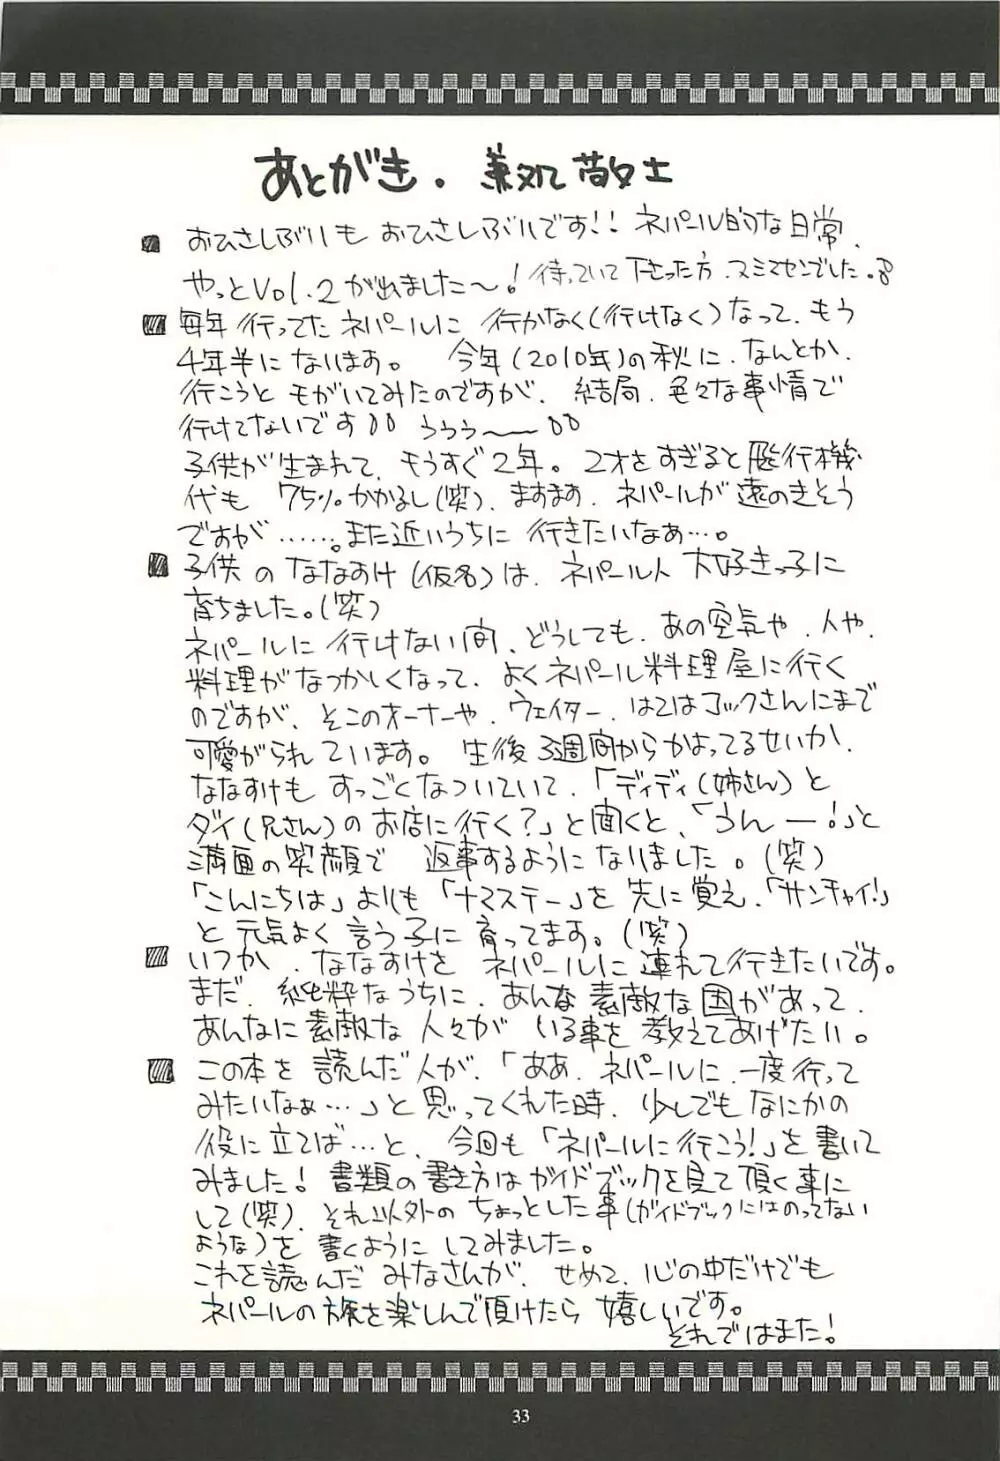 あとがき. 兼処敬士
おひさしぶりもおひさしぶりです!! ネパール的な日常、
やっとVol.2が出ました〜!待っていて下さった方、スミマセンでした。
毎年行ってたネパールに 行かなく(行けなく)なって、もう
4年半になります。 今年(2010年)の秋に、なんとか、
行こうとモがいてみたのですが、結局、色々な事情で
行けてないです うぅぅ〜
子供が生まれて、もうすぐ2年。2才をすぎると飛行機
代も 75%かかるし(笑)、ますます、ネパールが遠のきそう
ですが……。また近いうちに 行きたいなぁ…。
子供のななすけ(仮名)は、ネパール人 大好きっ子に
育ちました。(笑)
ネパールに 行けない間、どうしても、あの空気や、人や、
料理がなつかしくなって、よくネパール料理屋に行く
のですが、そこのオーナーや、ウェイター、はてはコックさんにまで
可愛がられています。 生後3週間からかよってるせいか、
ななすけも すっごくなついていて、「ディディ(姉さん)と
ダイ(兄さん)のお店に行く?」と聞くと、「うんー!」と
満面の笑顔で 返事するようになりました。(笑)
「こんにちは」よりも「ナマステー」を先に覚え、「サンチャイ!」
と 元気よく言う子に育ってます。(笑)
いつか、ななすけを ネパールに連れて行きたいです。
まだ、純粋なうちに、あんな素敵な国があって、
あんなに素敵な人々が いる事を教えてあげたい。
この本を 読んだ人が、「ああ、ネパールに、一度行って
みたいなぁ…」と思ってくれた時、少しでもなにかの
役に立てば…と、今回も「ネパールに行こう!」を書いて
みました! 書類の書き方はガイドブックを見て頂く事に
して(笑)、それ以外の ちょっとした事(ガイドブックにはのってない
ような)を 書くようにしてみました。
これを読んだみなさんが、せめて、心の中だけでも
ネパールの旅を楽しんで頂けたら 嬉しいです。
それではまた!
33